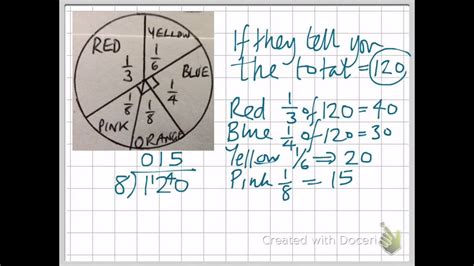 RED
YELLOW
BLUE
ORANGE
PINK
1/3
1/6
1/4
1/8
1/8
015
8)120
If they tell you
the total = 120
Red 1/3 of 120 = 40
Blue 1/4 of 120 = 30
Yellow 1/6 ⇒ 20
Pink 1/8 = 15
Created with Doceri